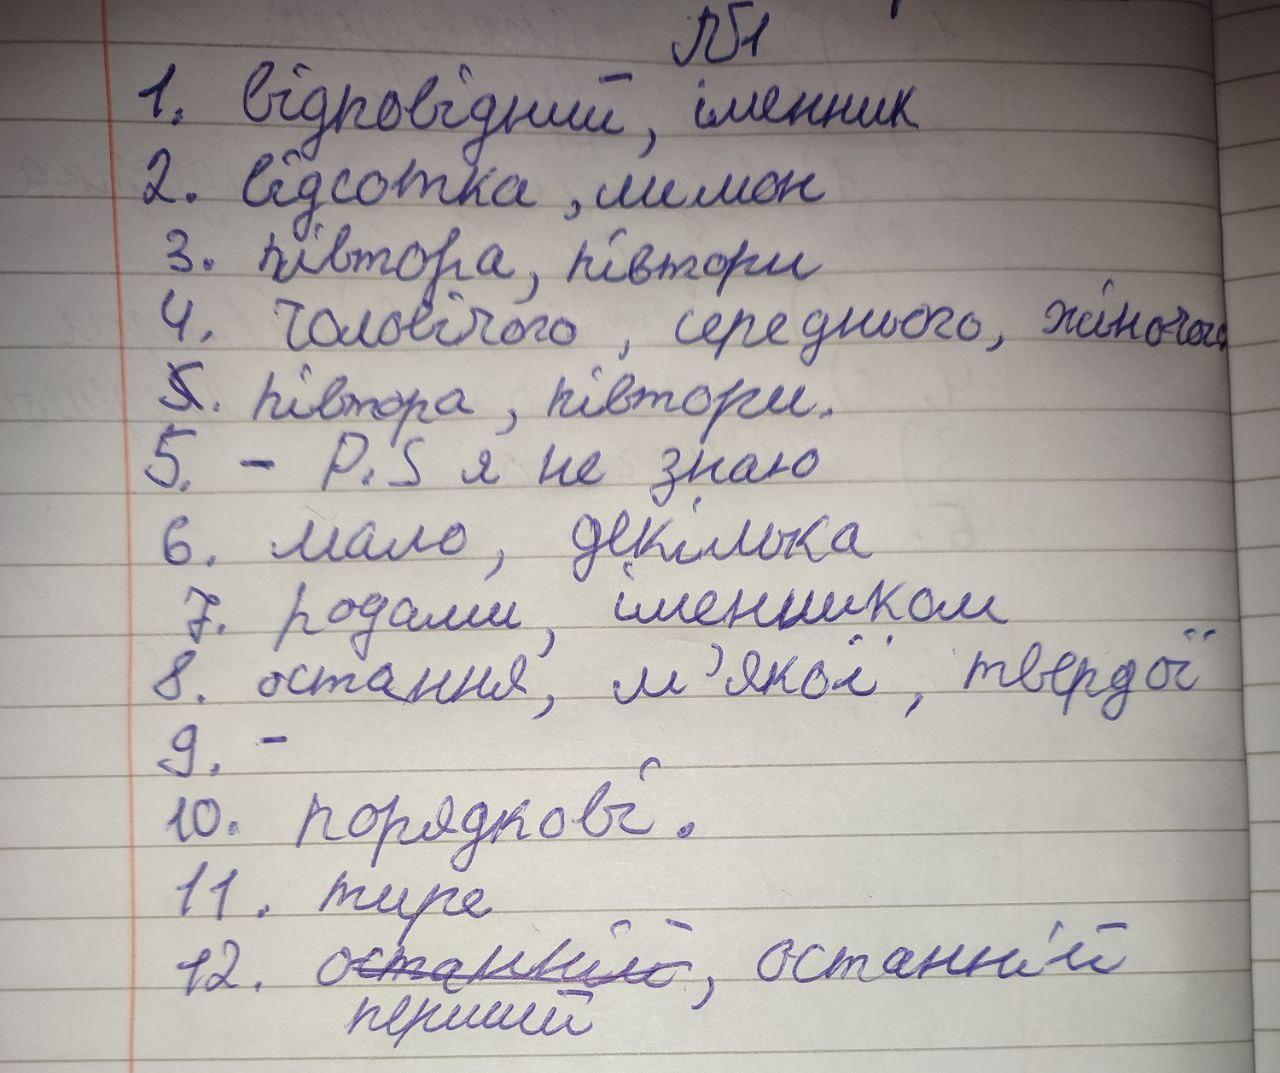 №1
1. відповідний, іменник
2. відсотка, лимон
3. півтора, півтори
4. чоловічого, середнього, жіночого
5. півтора, півтори.
5. - P.S я не знаю
6. мало, декілька
7. родами, іменником
8. остання, м'якої, твердої
9. -
10. порядкові.
11. тире
12. останній, останній
перший